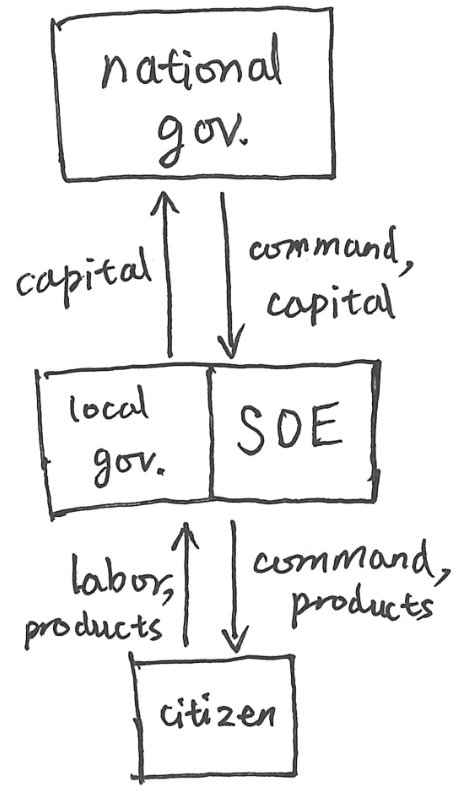 national
gov.
capital
command,
capital
local
gov.
SOE
labor,
products
command,
products
citizen